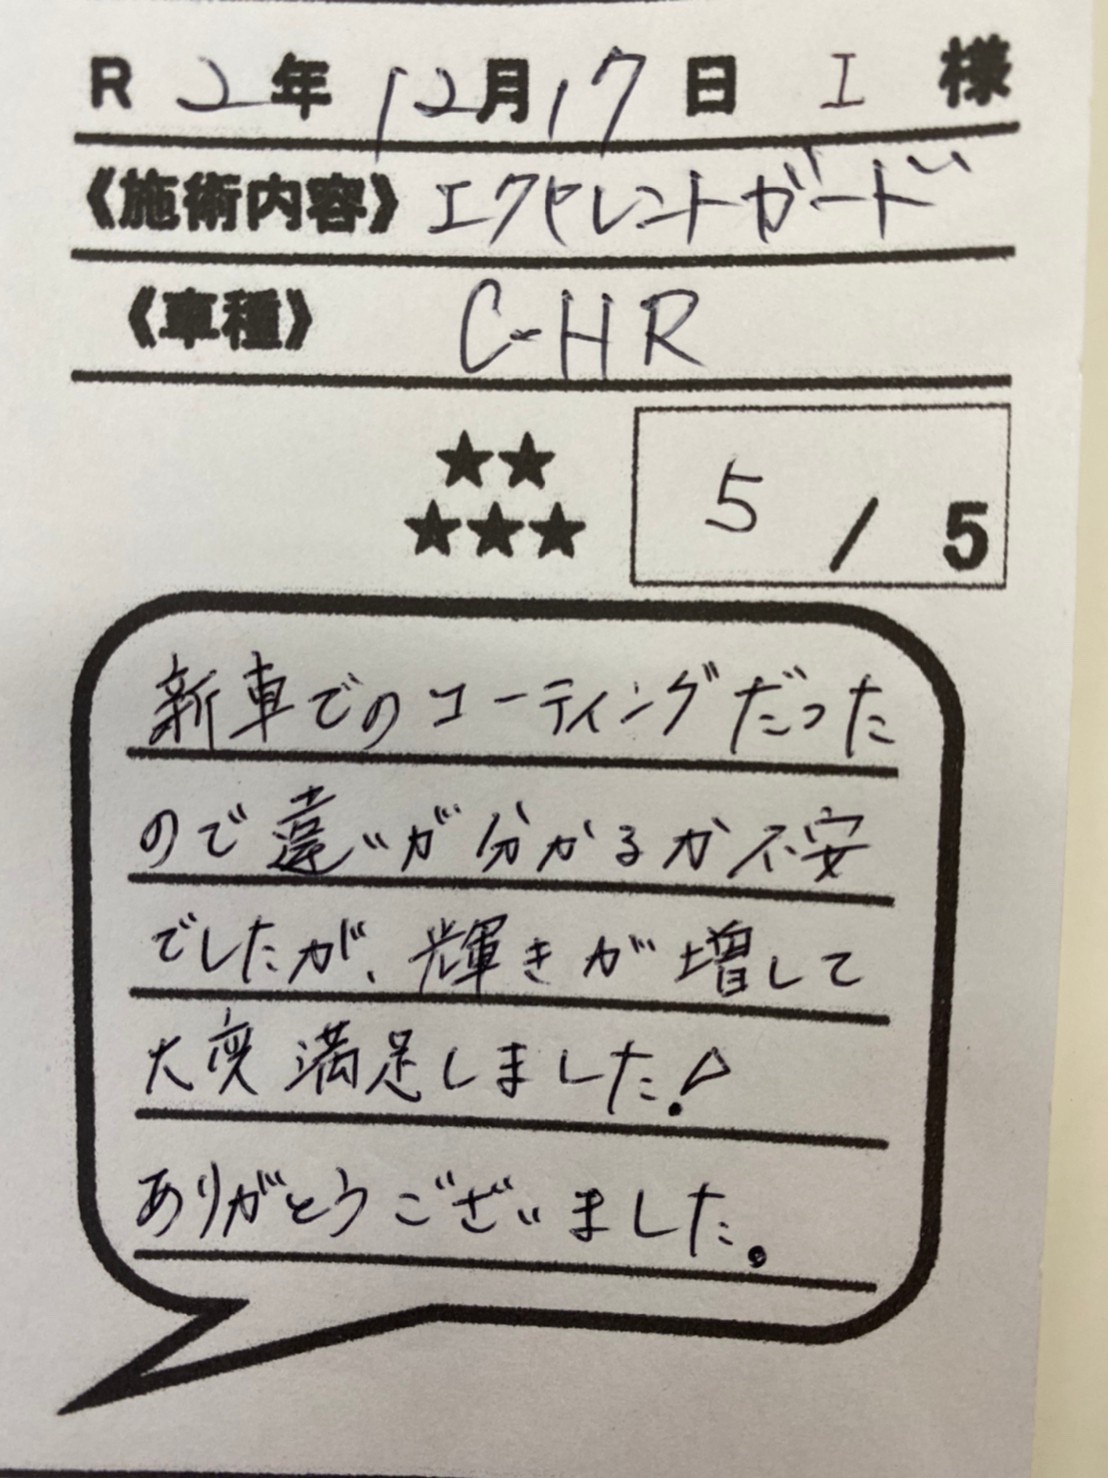 R 2年 12月 17日 I 様
《施術内容》 エクセレントガード
《車種》 C-HR
★★
★★★ 5 / 5
新車でのコーティングだった
ので違いが分かるか不安
でしたが、輝きが増して
大変満足しました!
ありがとうございました。